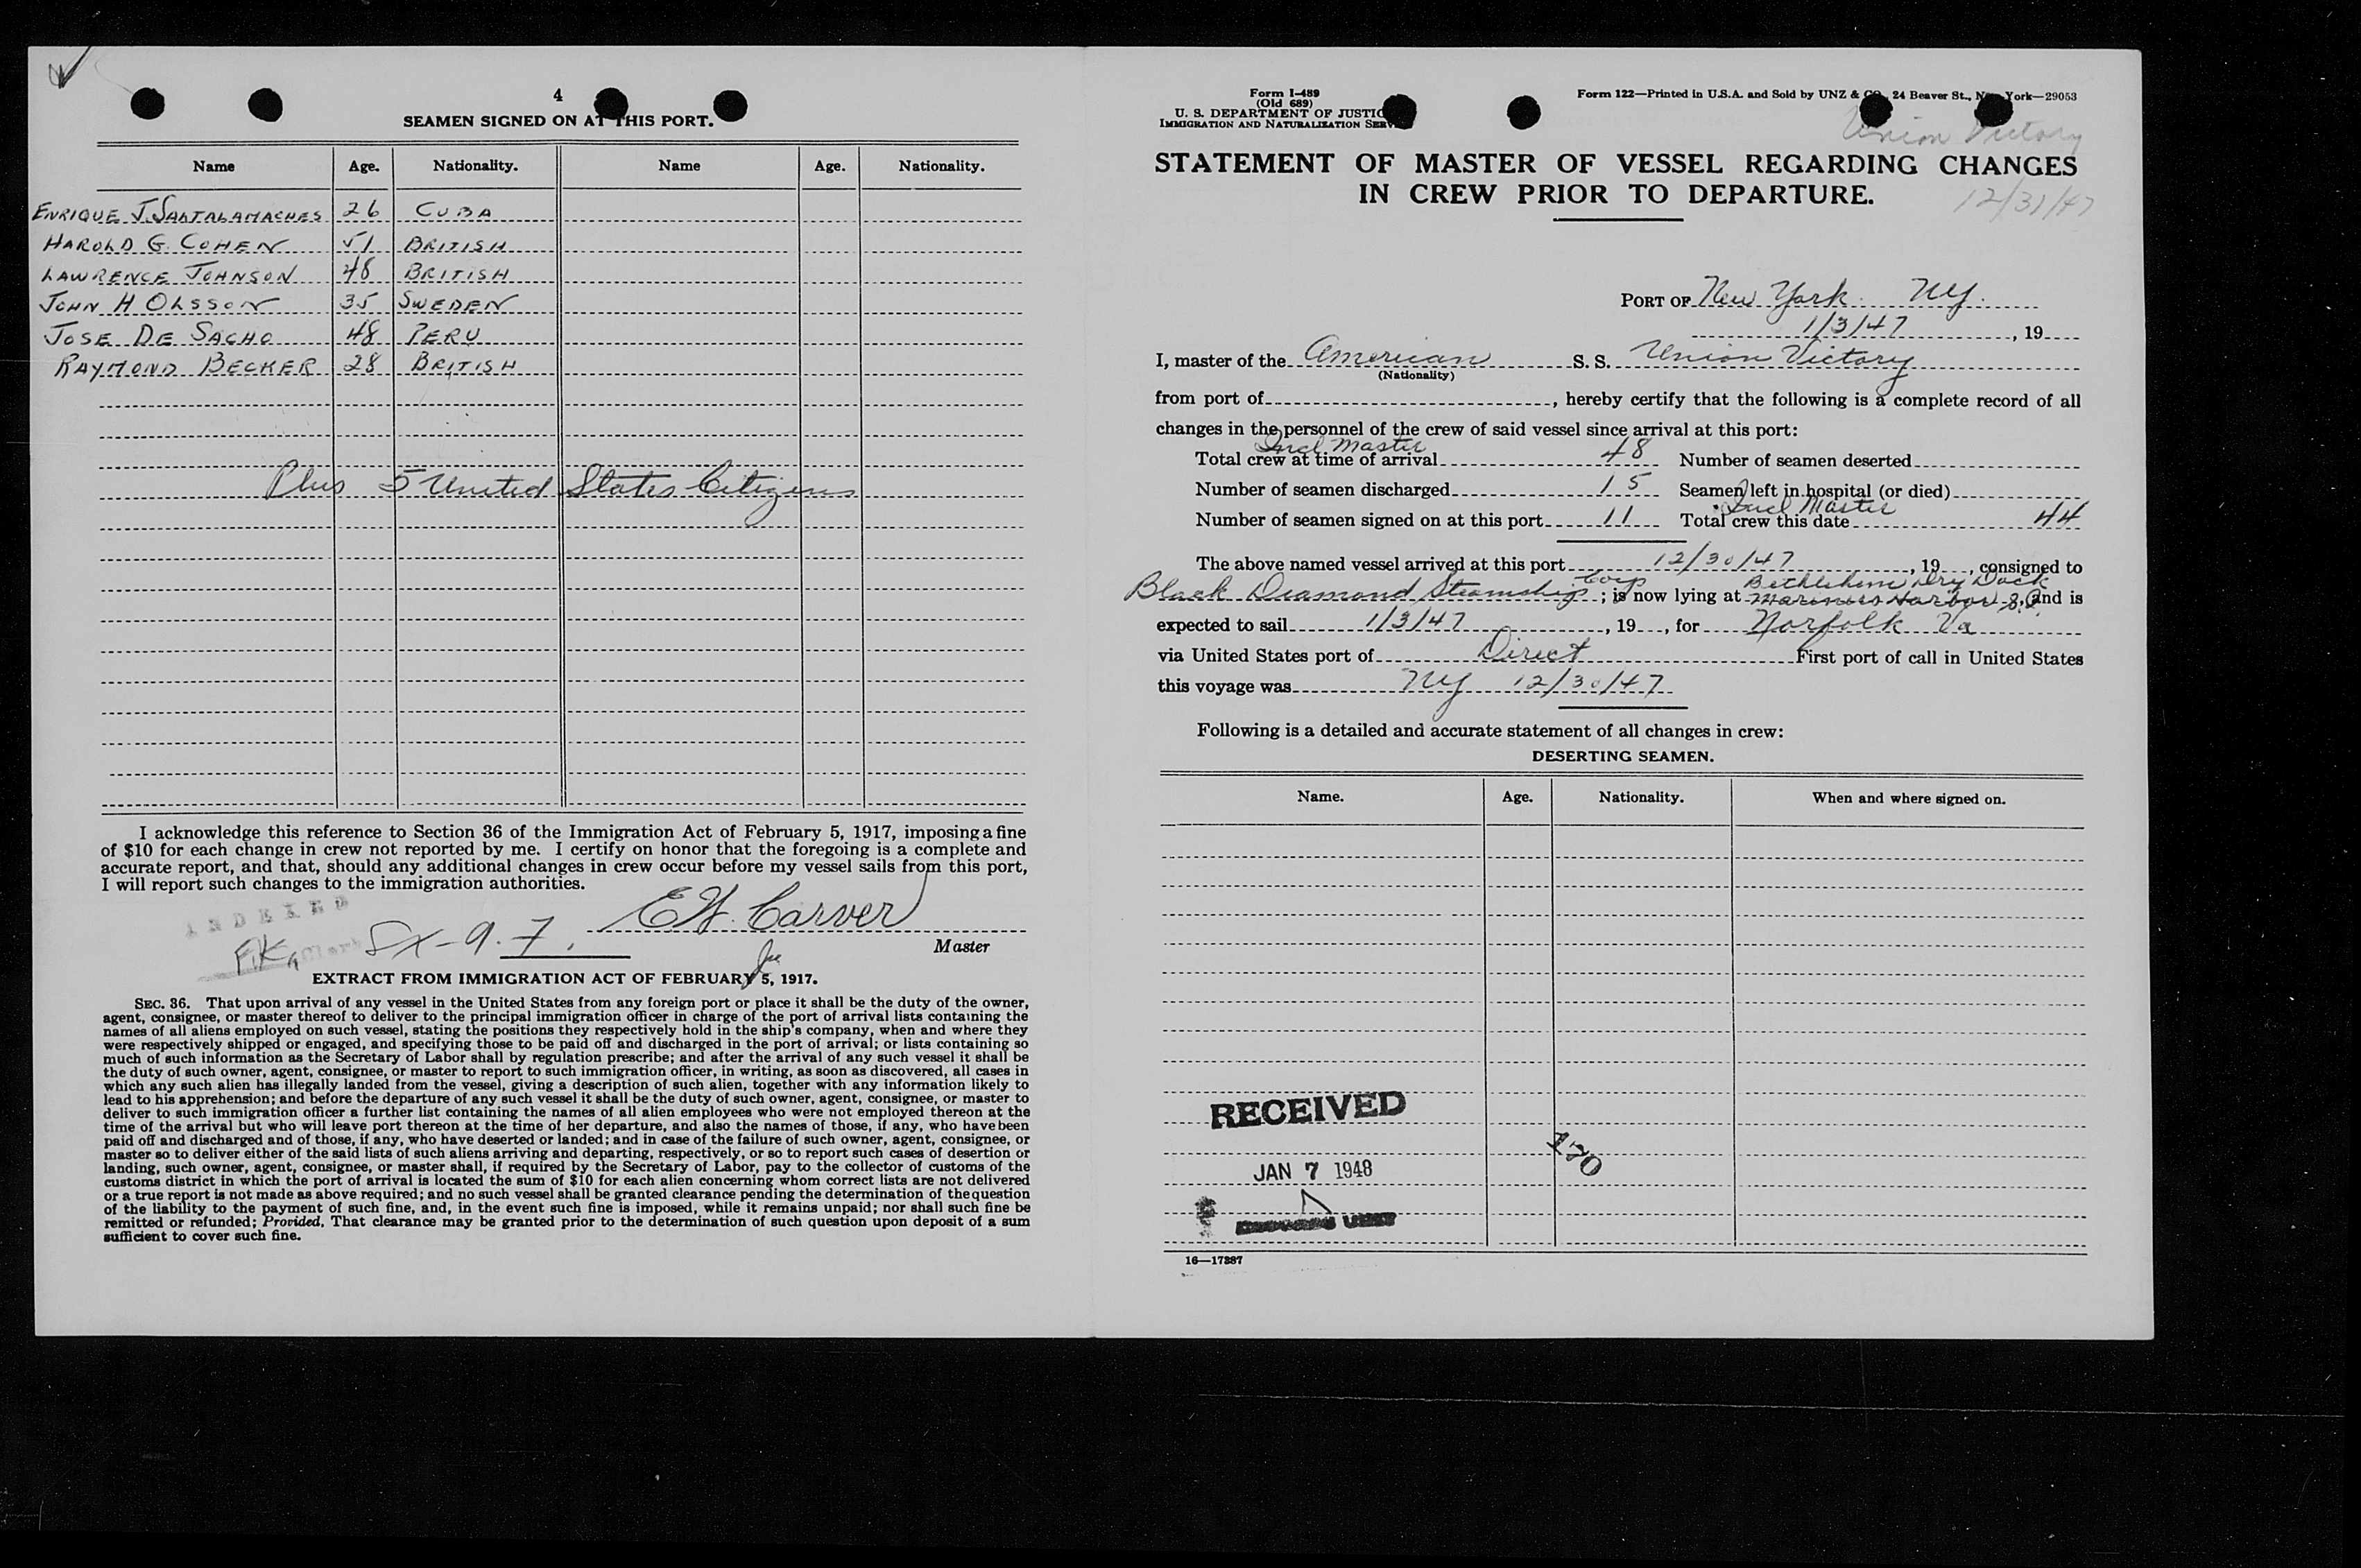 4
SEAMEN SIGNED ON AT THIS PORT.
Name Age. Nationality. Name Age. Nationality.
ENRIQUE J. 26 CUBA
HAROLD G. COHEN 51 BRITISH
LAWRENCE JOHNSON 48 BRITISH
JOHN H OLSSON 35 SWEDEN
JOSE DE SACHO 48 PERU
RAYMOND BECKER 28 BRITISH
Plus 5 United States Citizens
I acknowledge this reference to Section 36 of the Immigration Act of February 5, 1917, imposing a fine
of $10 for each change in crew not reported by me. I certify on honor that the foregoing is a complete and
accurate report, and that, should any additional changes in crew occur before my vessel sails from this port,
I will report such changes to the immigration authorities.
INDEXED
E.H. Carver
9.7.
Master
EXTRACT FROM IMMIGRATION ACT OF FEBRUARY 5, 1917.
SEC. 36. That upon arrival of any vessel in the United States from any foreign port or place it shall be the duty of the owner,
agent, consignee, or master thereof to deliver to the principal immigration officer in charge of the port of arrival lists containing the
names of all aliens employed on such vessel, stating the positions they respectively hold in the ship's company, when and where they
were respectively shipped or engaged, and specifying those to be paid off and discharged in the port of arrival; or lists containing so
much of such information as the Secretary of Labor shall by regulation prescribe; and after the arrival of any such vessel it shall be
the duty of such owner, agent, consignee, or master to report to such immigration officer, in writing, as soon as discovered, all cases in
which any such alien has illegally landed from the vessel, giving a description of such alien, together with any information likely to
lead to his apprehension; and before the departure of any such vessel it shall be the duty of such owner, agent, consignee, or master to
deliver to such immigration officer a further list containing the names of all alien employees who were not employed thereon at the
time of the arrival but who will leave port thereon at the time of her departure, and also the names of those, if any, who have been
paid off and discharged and of those, if any, who have deserted or landed; and in case of the failure of such owner, agent, consignee, or
master so to deliver either of the said lists of such aliens arriving and departing, respectively, or so to report such cases of desertion or
landing, such owner, agent, consignee, or master shall, if required by the Secretary of Labor, pay to the collector of customs of the
customs district in which the port of arrival is located the sum of $10 for each alien concerning whom correct lists are not delivered
or a true report is not made as above required; and no such vessel shall be granted clearance pending the determination of the question
of the liability to the payment of such fine, and, in the event such fine is imposed, while it remains unpaid; nor shall such fine be
remitted or refunded; Provided, That clearance may be granted prior to the determination of such question upon deposit of a sum
sufficient to cover such fine.
Form I-489
(Old 689)
U. S. DEPARTMENT OF JUSTIC
IMMIGRATION AND NATURALIZATION SERV
Form 122—Printed in U.S.A. and Sold by UNZ & CO., 24 Beaver St., New York—29053
Union Victory
STATEMENT OF MASTER OF VESSEL REGARDING CHANGES
IN CREW PRIOR TO DEPARTURE.
12/31/47
PORT OF New York NY.
1/3/47, 19
I, master of the American S. S. Union Victory
(Nationality)
from port of , hereby certify that the following is a complete record of all
changes in the personnel of the crew of said vessel since arrival at this port:
Incl Master
Total crew at time of arrival 48 Number of seamen deserted
Number of seamen discharged 15 Seamen left in hospital (or died)
Incl Master
Number of seamen signed on at this port 11 Total crew this date 44
The above named vessel arrived at this port 12/30/47, 19 , consigned to
Black Diamond Steamship Corp; is now lying at Bethlehem Dry Dock Mariners Harbor S.I. and is
expected to sail 1/3/47, 19 , for Norfolk Va
via United States port of Direct First port of call in United States
this voyage was NY 12/30/47
Following is a detailed and accurate statement of all changes in crew:
DESERTING SEAMEN.
Name. Age. Nationality. When and where signed on.
RECEIVED
170
JAN 7 1948
16—17287